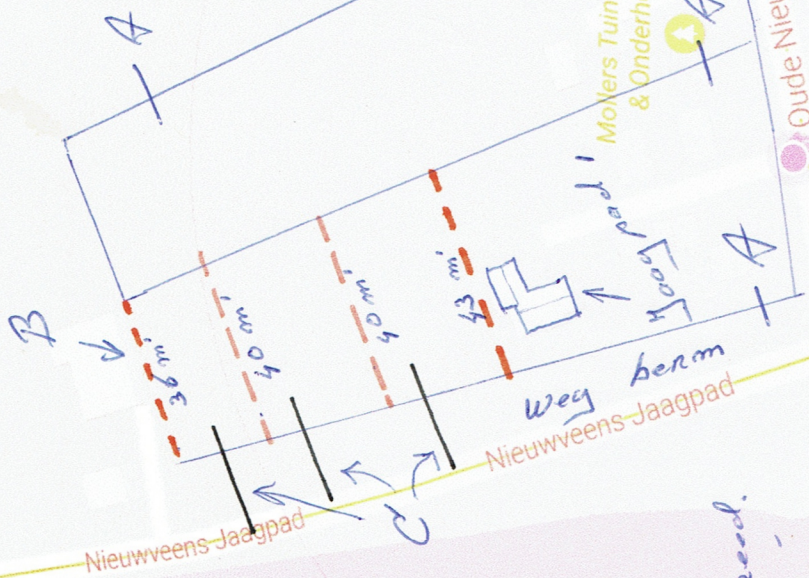 A
A
Mollers Tuin
& Onderh
Oude Nieu
B
36 m'
40 m'
40 m'
43 m'
"Jaagpad"
A
Weg berm
Nieuwveens Jaagpad
C
Nieuwveens Jaagpad